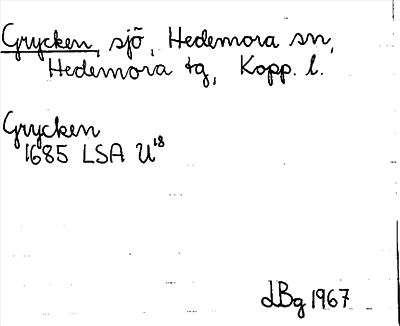 Grycken, sjö, Hedemora sn,
Hedemora tg, Kopp. l.
Grycken
1685 LSA U18
dBg 1967